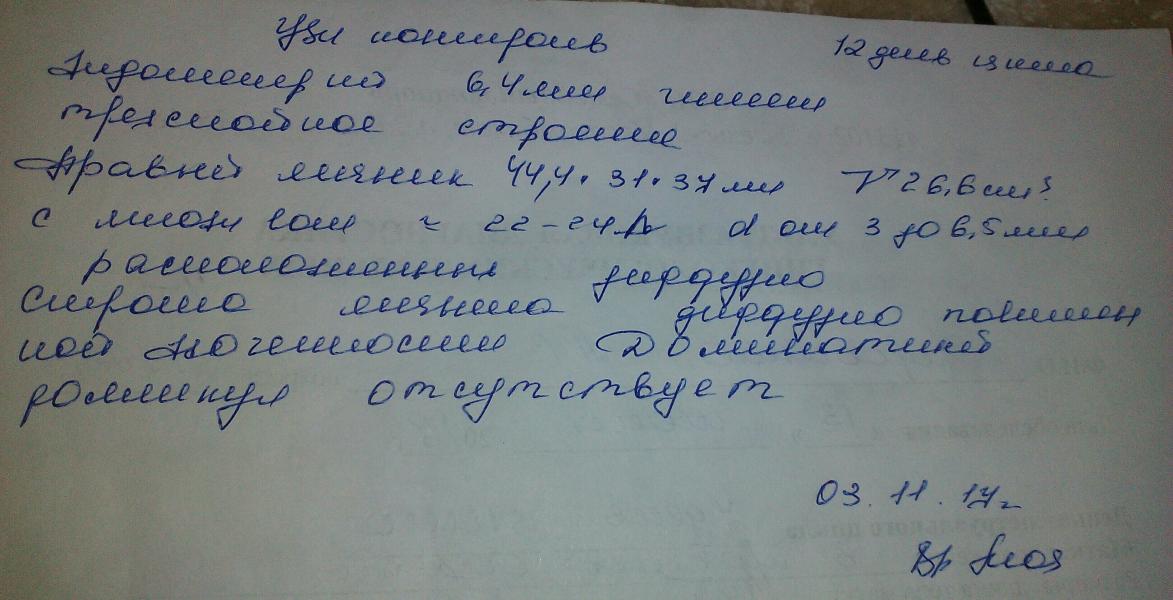 Узи контроль 12 день цикла
Эндометрий 6,4 мм имеет
трехслойное строение
Правый яичник 44,4*31*37 мм V 26,6 см³
с множеством ≈ 22-24 d от 3 до 6,5 мм
расположенных диффузно
Строма яичника диффузно повышен
ной эхогенности Доминатный
фолликул отсутствует
03.11.17г
Вр